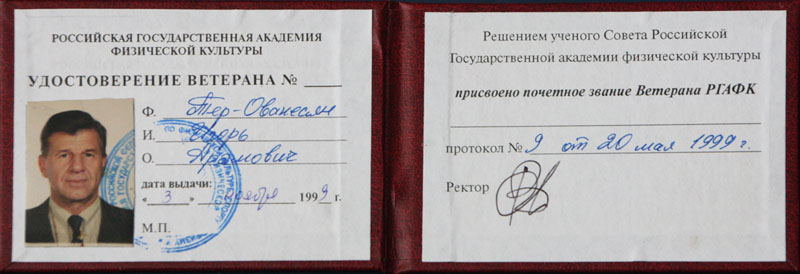 РОССИЙСКАЯ ГОСУДАРСТВЕННАЯ АКАДЕМИЯ
ФИЗИЧЕСКОЙ КУЛЬТУРЫ
УДОСТОВЕРЕНИЕ ВЕТЕРАНА № ____
Ф. Тер-Ованесян
И. Игорь
О. Арамович
дата выдачи:
« 3 » ноября 1999 г.
М.П.
Решением ученого Совета Российской
Государственной академии физической культуры
присвоено почетное звание Ветерана РГАФК
протокол № 9 от 20 мая 1999 г.
Ректор